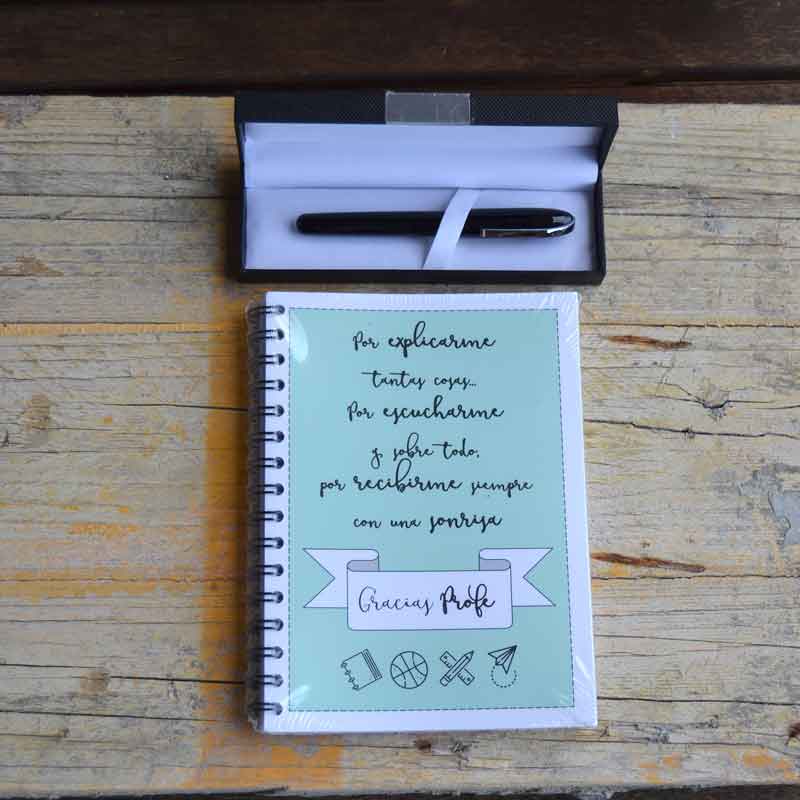 Por explicarme
tantas cosas...
Por escucharme
y, sobre todo,
por recibirme siempre
con una sonrisa
Gracias Profe